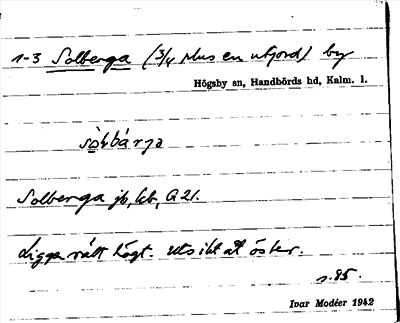 1-3 Solberga (3/4 Mus en utjord) by
Högsby sn, Handbörds hd, Kalm. l.
Solberga jb, kb, G 21.
Ligga rätt högt. Utsikt åt öster.
s. 85.
Ivar Modéer 1942